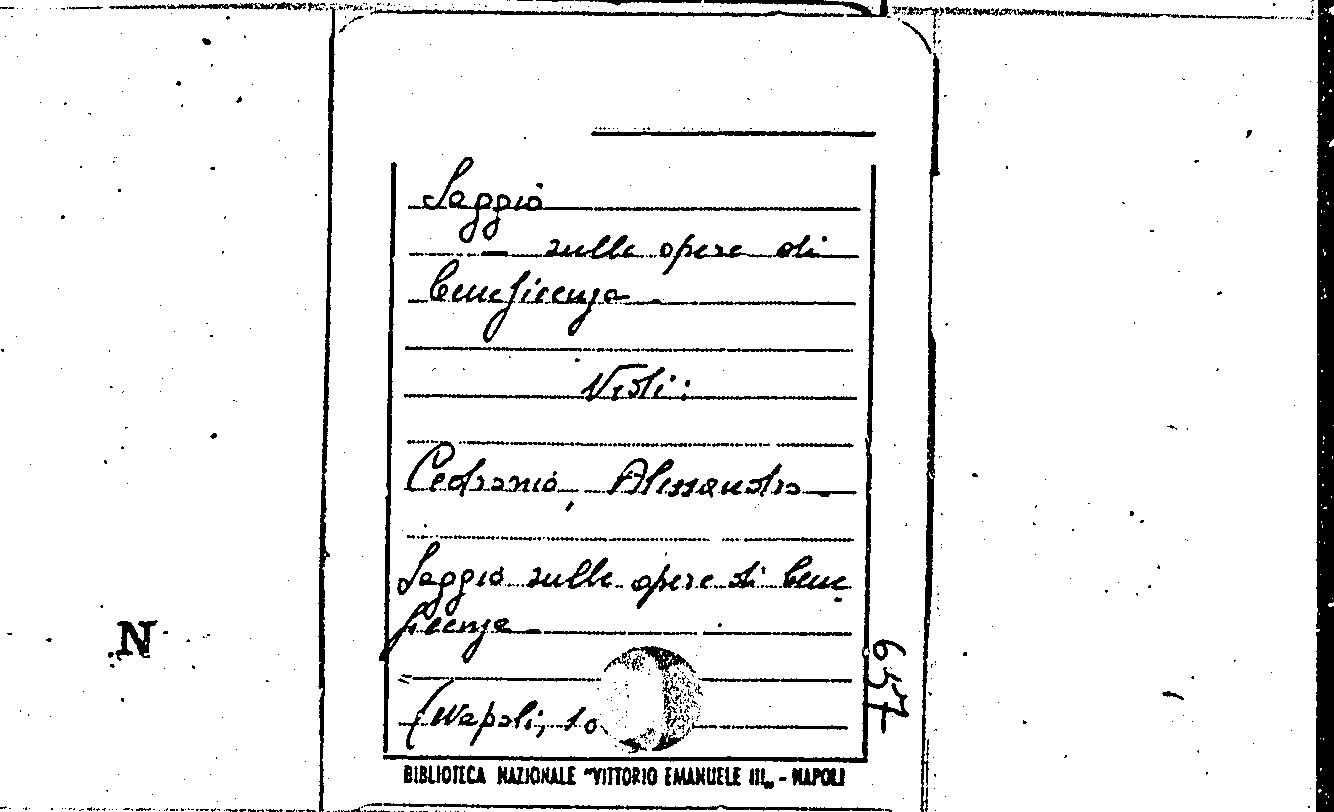 Saggio
- sulle opere di
beneficenza -
Vedi:
Cedronio, Alessandro -
Saggio sulle opere di bene
ficenza -
(Napoli, 10
BIBLIOTECA NAZIONALE "VITTORIO EMANUELE III„ - NAPOLI
657
N